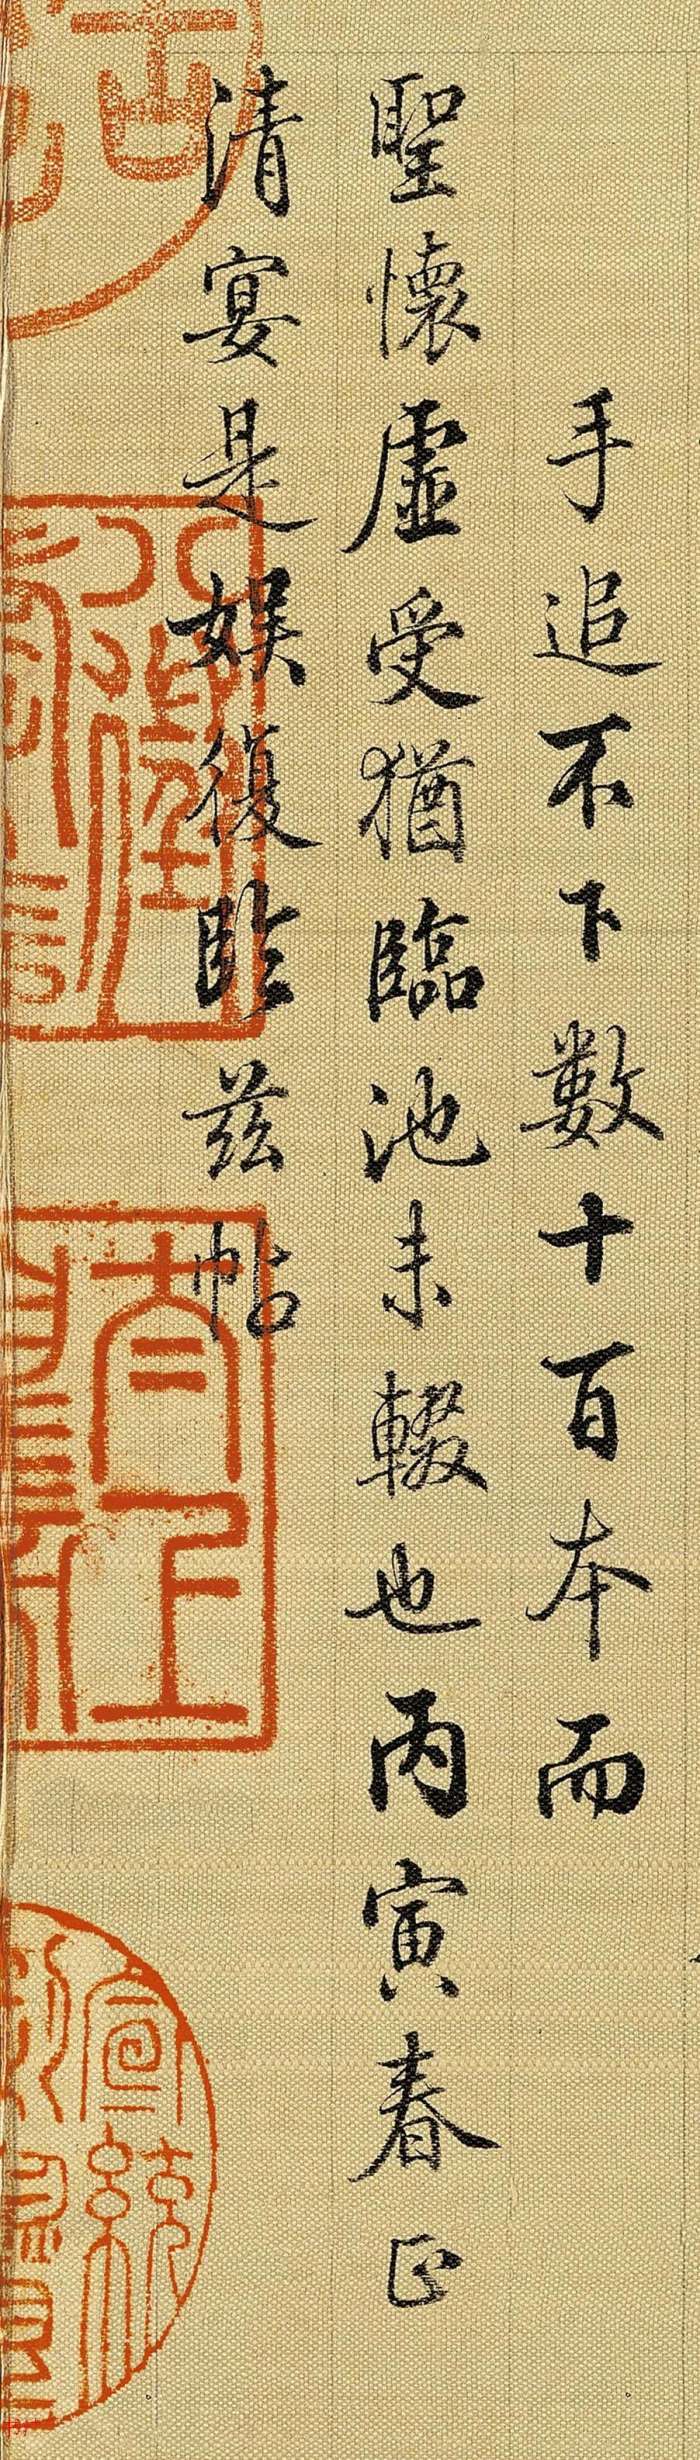 手追不下數十百本而
聖懷虛受猶臨池未輟也丙寅春正
清宴是娱復临茲帖
八徵
太上
宣統